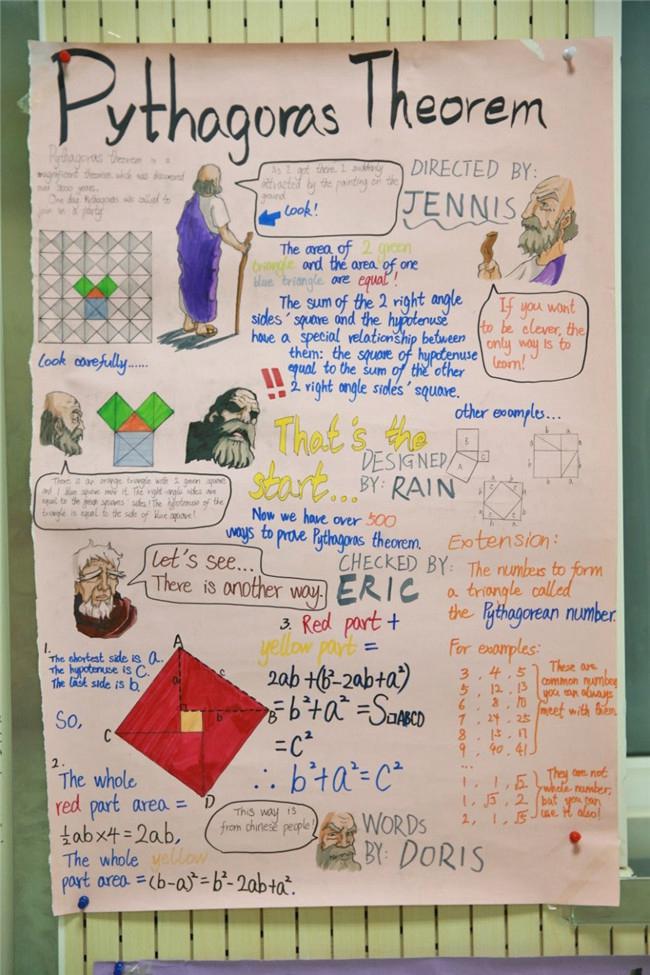 Pythagoras Theorem
Pythagoras theorem is a
magnificent theorem which was discovered
over 3000 years.
One day, Pythagoras was called to
join in a party.
As I got there I suddenly
attracted by the painting on the
ground.
Look!
DIRECTED BY:
JENNIS
The area of 2 green
triangle and the area of one
blue triangle are equal!
The sum of the 2 right angle
sides' square and the hypotenuse
have a special relationship between
them: the square of hypotenuse
equal to the sum of the other
2 right angle sides' square.
!!
If you want
to be clever, the
only way is to
learn!
Look carefully......
There is an orange triangle with 2 green square
and 1 blue square near it. The right angle sides are
equal to the green squares' sides! The hypotenuse of the
triangle is equal to the side of blue square!
That's the
start...
DESIGNED
BY: RAIN
other examples...
A
B
C
Now we have over 500
ways to prove Pythagoras theorem.
Let's see...
There is another way.
CHECKED BY:
ERIC
Extension:
The numbers to form
a triangle called
the Pythagorean number.
1.
The shortest side is a.
The hypotenuse is C.
The last side is b.
So,
A
a
c
b
B
C
D
3. Red part +
yellow part =
2ab+(b²-2ab+a²)
=b²+a²=S□ABCD
=c²
∴ b²+a²=c²
For examples:
3, 4, 5
5, 12, 13
6, 8, 10
7, 24, 25
8, 15, 17
9, 40, 41
...
These are
common number
you can always
meet with them
1, 1, √2
1, √3, 2
2, 1, √5
They are not
whole number,
but you can
use it also!
2.
The whole
red part area =
½ab×4=2ab,
The whole yellow
part area =(b-a)²=b²-2ab+a².
This way is
from chinese people!
WORDS
BY: DORIS